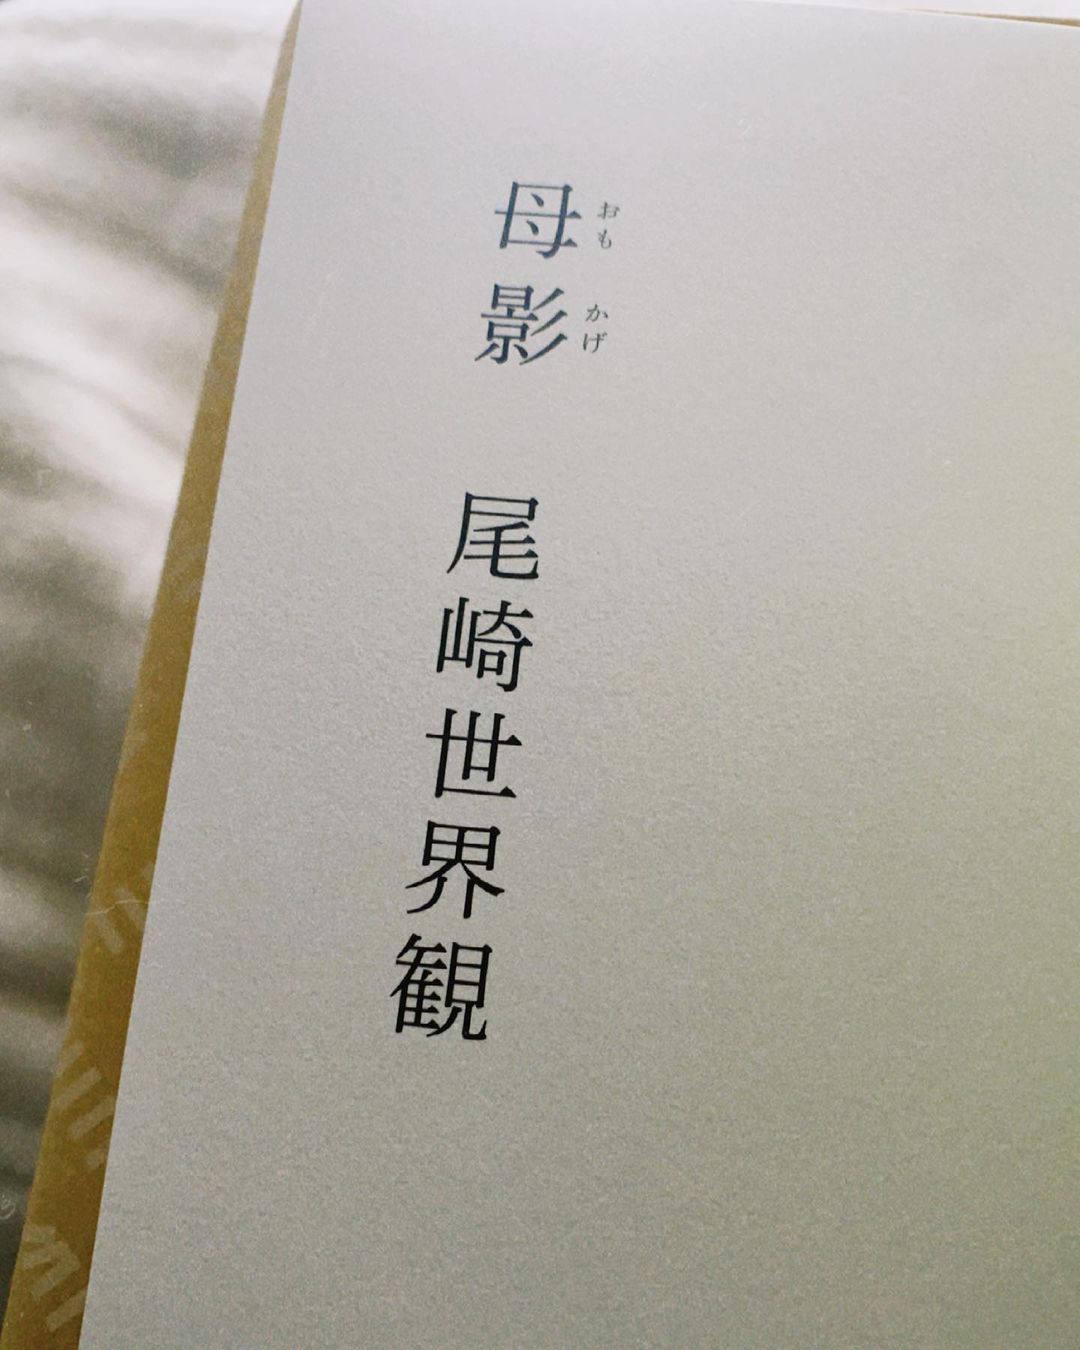 母影
おもかげ
尾崎世界観